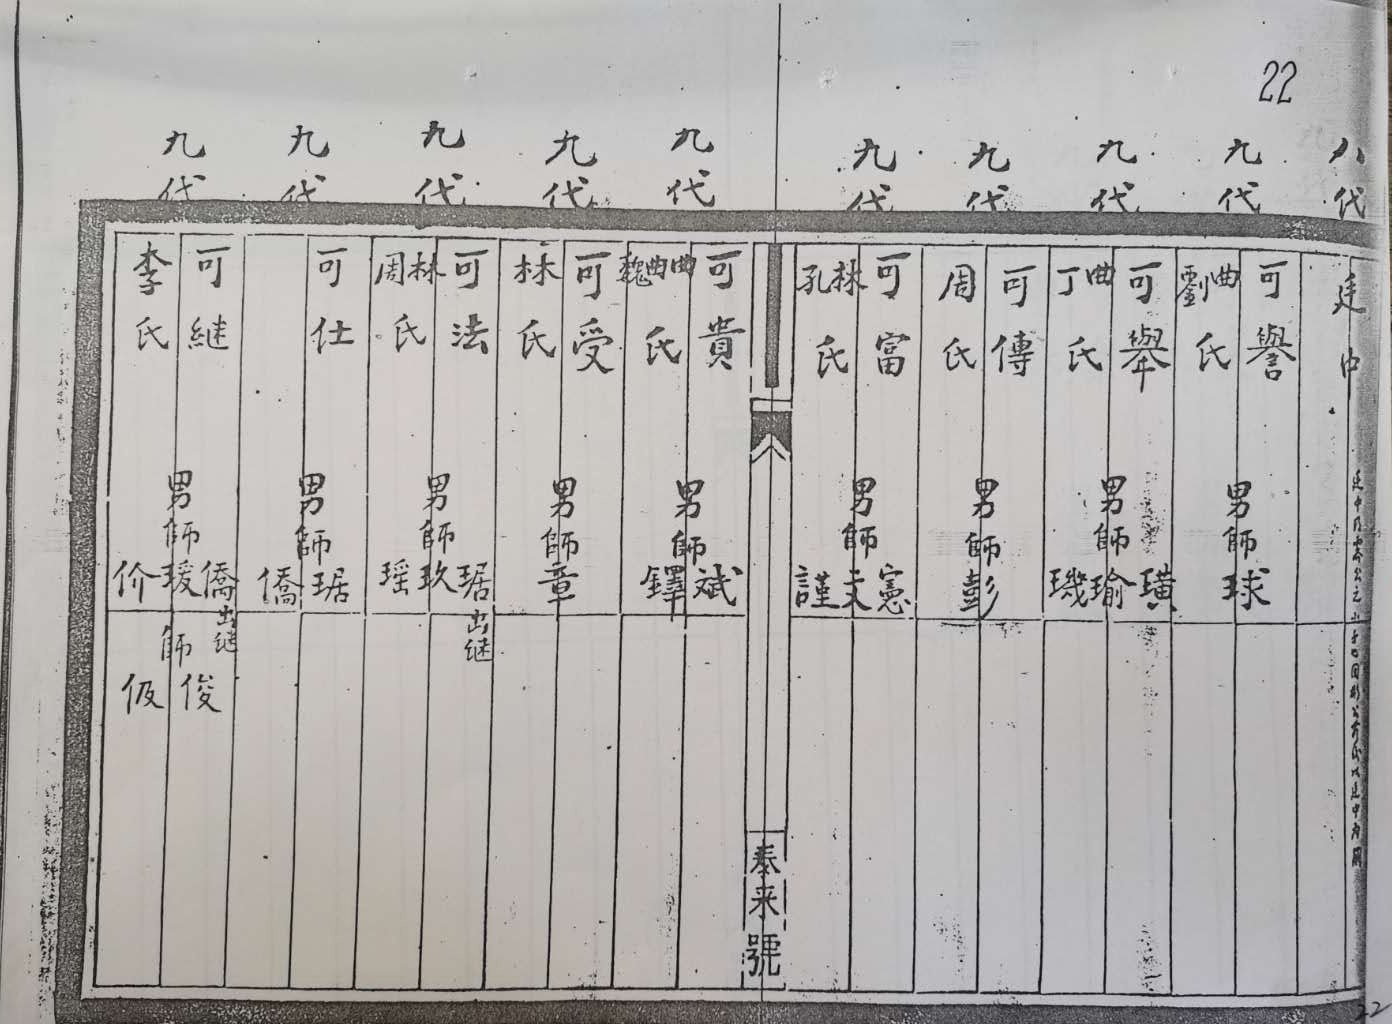 22
八代
廷中
九代
可譽
曲劉氏
男師球
九代
可舉
曲丁氏
男師璜瑜璣
九代
可傳
周氏
男師彭
九代
可富
林孔氏
男師憲文謹
泰来號
九代
可貴
曲曲魏氏
男師斌鐸
九代
可受
林氏
男師章
九代
可法
林周氏
男師琚出继玖瑶
九代
可仕
男師琚僑
九代
可継
李氏
男師僑出継瑗价
師俊伋
22